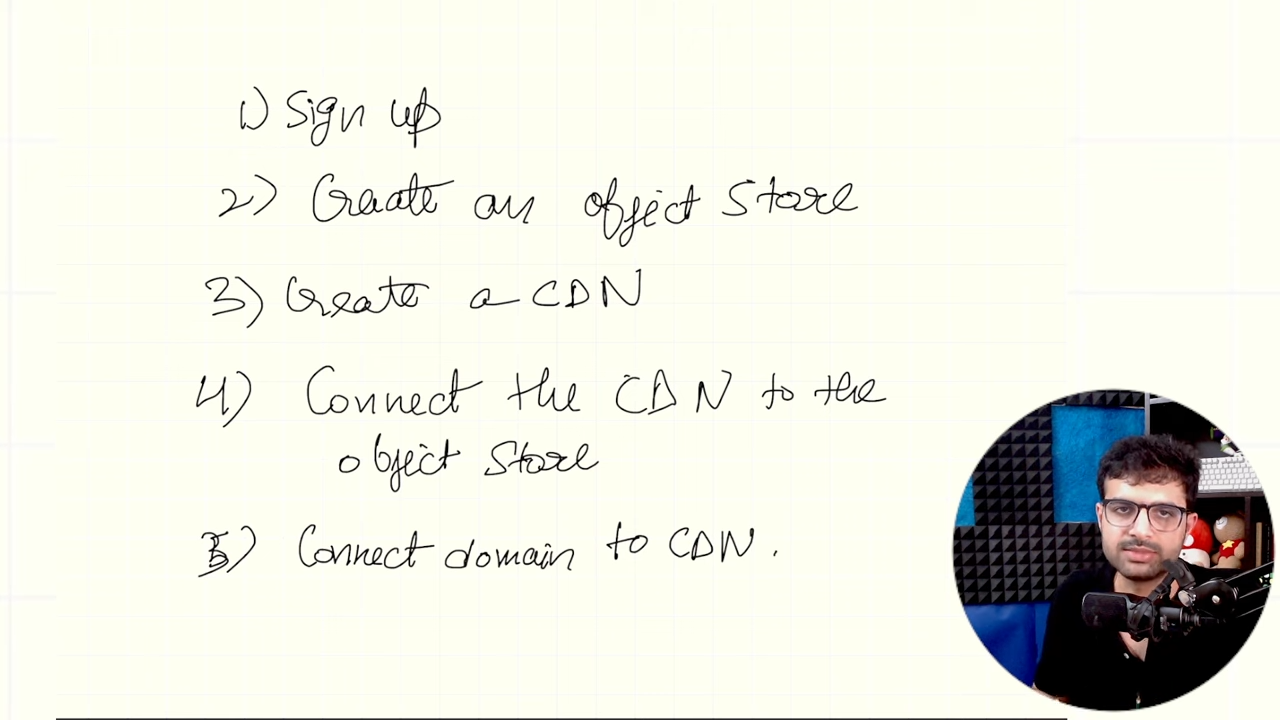 1) Sign up
2) Create an object store
3) Create a CDN
4) Connect the CDN to the
object store
5) Connect domain to CDN.